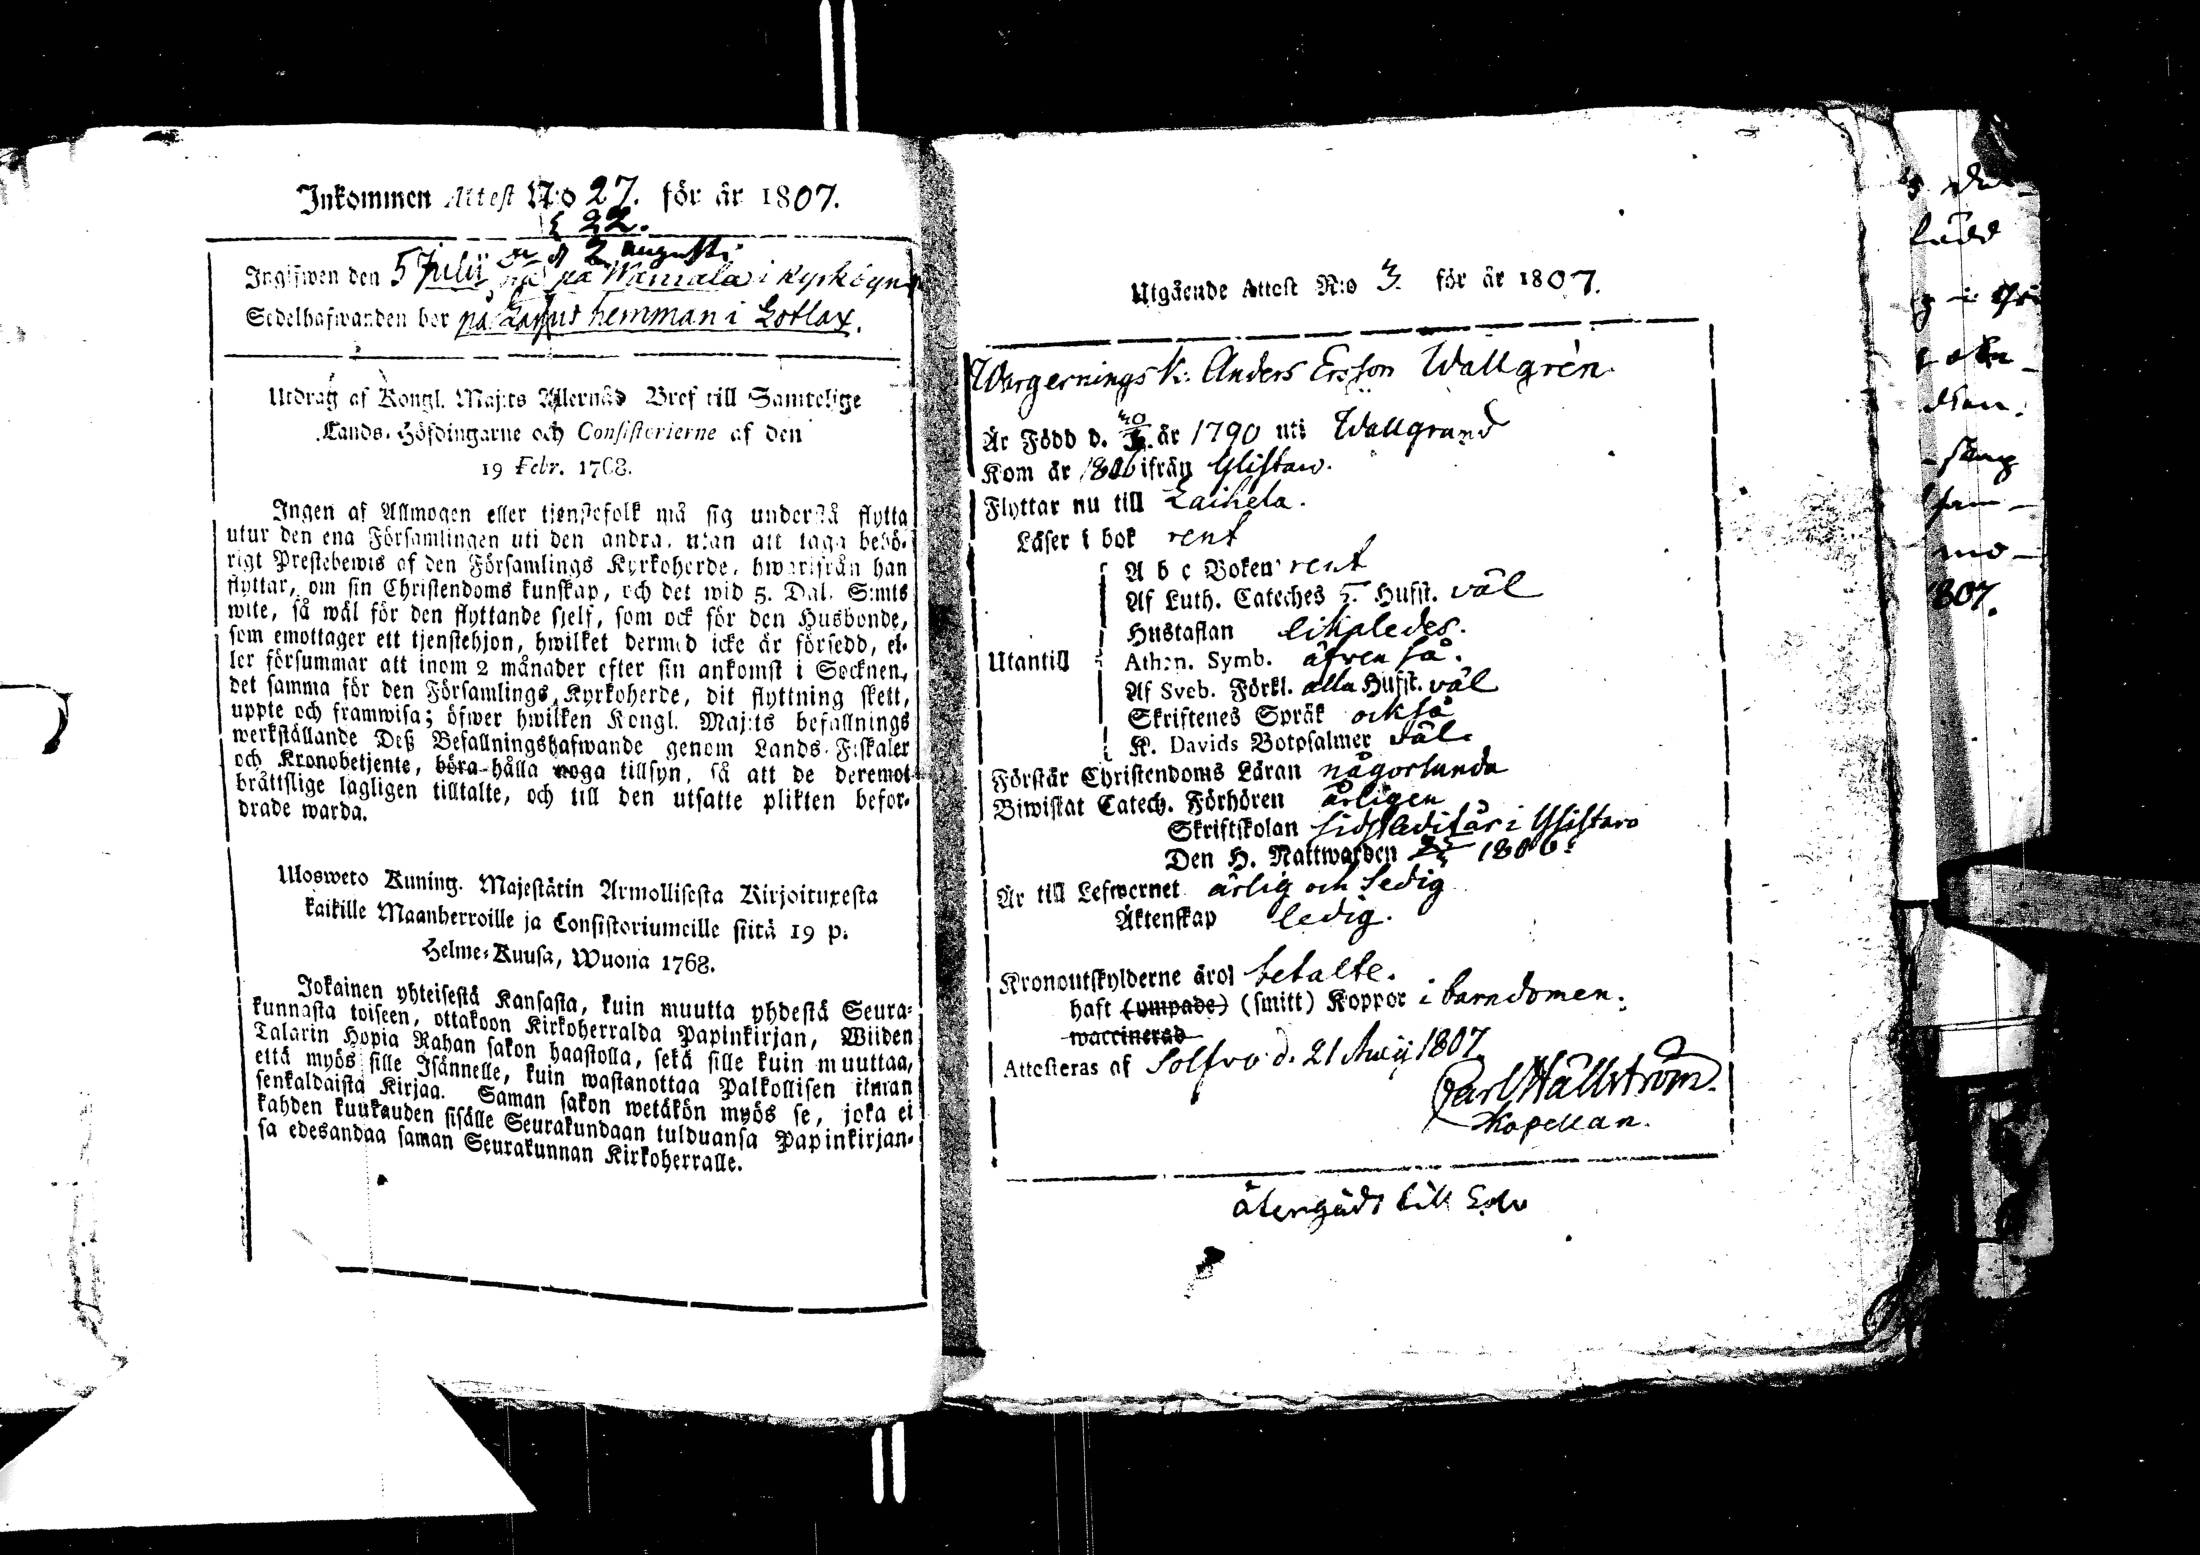 Inkommen Attest N:o 27. för år 1807.
& 22.
d 2 augusti
Ingifwen den 5 Julii på Wanrala i Kyrkbyn
Sedelhafwanden bor på hemman i Lotlax.
Utdrag af Kongl. Maj:ts Allernåd Bref till Samtelige
Lands-Höfdingarne och Consistorierne af den
19 Febr. 1768.
Ingen af Allmogen eller tienstefolk må sig understå flytta
utur den ena Församlingen uti den andra, utan att taga behö-
rigt Prestebewis af den Församlings Kyrkoherde, hwarifrån han
flyttar, om sin Christendoms kunskap, och det wid 5. Dal. S:mts
wite, så wäl för den flyttande sjelf, som ock för den Husbonde,
som emottager ett tjenstehjon, hwilket dermed icke är försedd, el-
ler försummar att inom 2 månader efter sin ankomst i Socknen,
det samma för den Församlings Kyrkoherde, dit flyttning skett,
uppte och framwisa; öfwer hwilken Kongl. Maj:ts befallnings
werkställande Deß Befallningshafwande genom Lands-Fiskaler
och Kronobetjente, böra hålla noga tillsyn, så att de deremot
bråttslige lagligen tilltalte, och till den utsatte plikten befor-
drade warda.
Ulosweto Kuning. Majestätin Armollisesta Kirjoituxesta
kaikille Maanherroille ja Consistoriumeille siitä 19 p.
Helme-Kuusa, Wuona 1768.
Jokainen yhteisestä Kansasta, kuin muutta yhdestä Seura-
kunnasta toiseen, ottakoon Kirkoherralda Papinkirjan, Wiiden
Talarin Hopia Rahan sakon haastolla, sekä sille kuin muuttaa,
että myös sille Isännelle, kuin wastanottaa Palkollisen ilman
senkaldaista Kirjaa. Saman sakon wetäkön myös se, joka ei
kahden kuukauden sisälle Seurakundaan tulduansa Papinkirjan-
sa edesandaa saman Seurakunnan Kirkoherralle.
Utgående Attest N:o 3. för år 1807.
Wargernings K: Anders Ersson Wallgrén
Är Född d. år 1790 uti Wallgrund
Kom år 1806 ifrån Ylistaro.
Flyttar nu till Laihela.
Läser i bok rent
A b c Boken rent
Af Luth. Cateches 5. Hufst. väl
Hustaflan likaledes.
Utantill
Athan. Symb. äfven så.
Af Sveb. Förkl. alla Hufst. väl
Skriftenes Språk också
K. Davids Botpsalmer väl.
Förstår Christendoms Läran någorlunda
Biwistat Catech. Förhören årligen
Skriftskolan i Ylistaro
Den H. Nattwarden 1806:
Är till Lefwernet ärlig och sedig
Äktenskap ledig.
Kronoutskylderne äro betalte.
haft (ympade) (smitt) Koppor i barndomen.
waccinerad
Attesteras af Solfvo d. 21 Maij 1807
Carl Hällström.
Kapellan.
återgådt till Solv
1807.